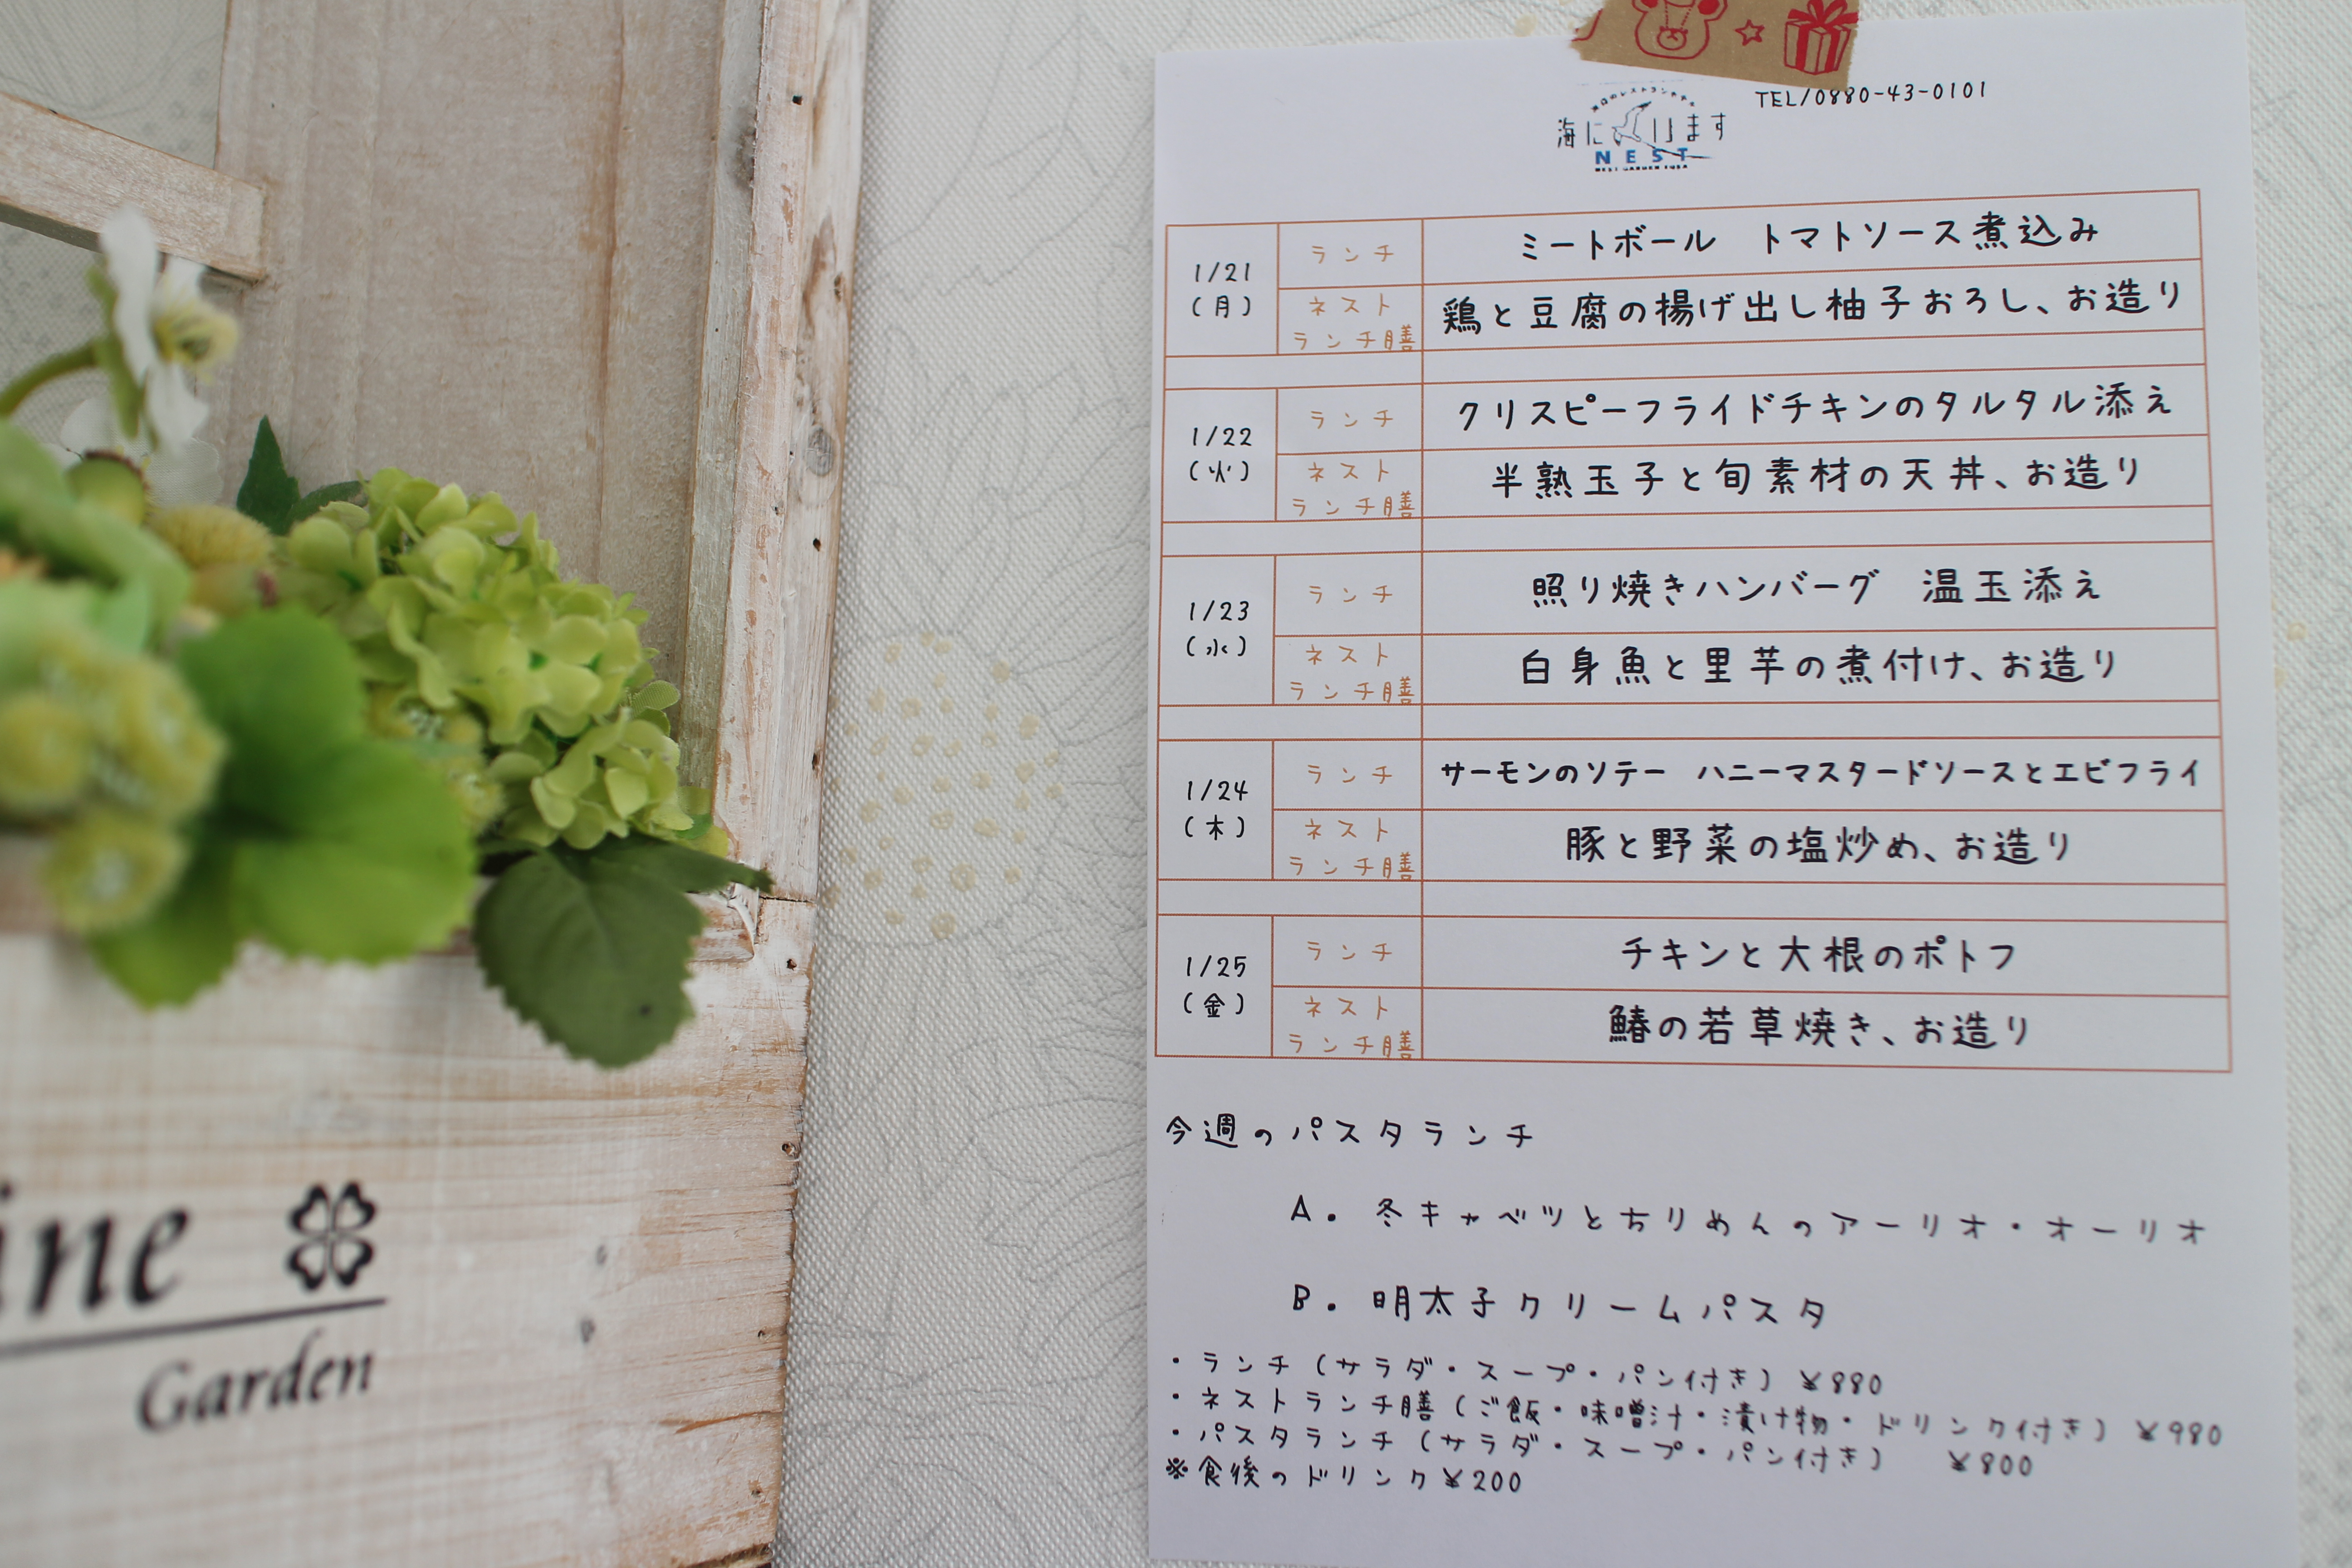 ine
Garden
TEL/0880-43-0101
海に
けます
NEST
1/21
(月)
ランチ
ミートボール　トマトソース煮込み
ネスト
ランチ膳
鶏と豆腐の揚げ出し柚子おろし、お造り
1/22
(火)
ランチ
クリスピーフライドチキンのタルタル添え
ネスト
ランチ膳
半熟玉子と旬素材の天丼、お造り
1/23
(水)
ランチ
照り焼きハンバーグ　温玉添え
ネスト
ランチ膳
白身魚と里芋の煮付け、お造り
1/24
(木)
ランチ
サーモンのソテー　ハニーマスタードソースとエビフライ
ネスト
ランチ膳
豚と野菜の塩炒め、お造り
1/25
(金)
ランチ
チキンと大根のポトフ
ネスト
ランチ膳
鰆の若草焼き、お造り
今週のパスタランチ
A. 冬キャベツとちりめんのアーリオ・オーリオ
B. 明太子クリームパスタ
・ランチ(サラダ・スープ・パン付き) ¥880
・ネストランチ膳(ご飯・味噌汁・漬け物・ドリンク付き) ¥980
・パスタランチ(サラダ・スープ・パン付き)　¥800
※食後のドリンク¥200